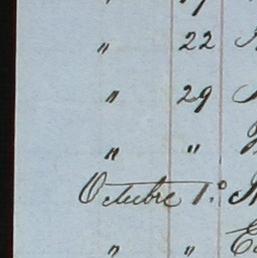 " 22
" 29
" "
Octubre 1.º
" "